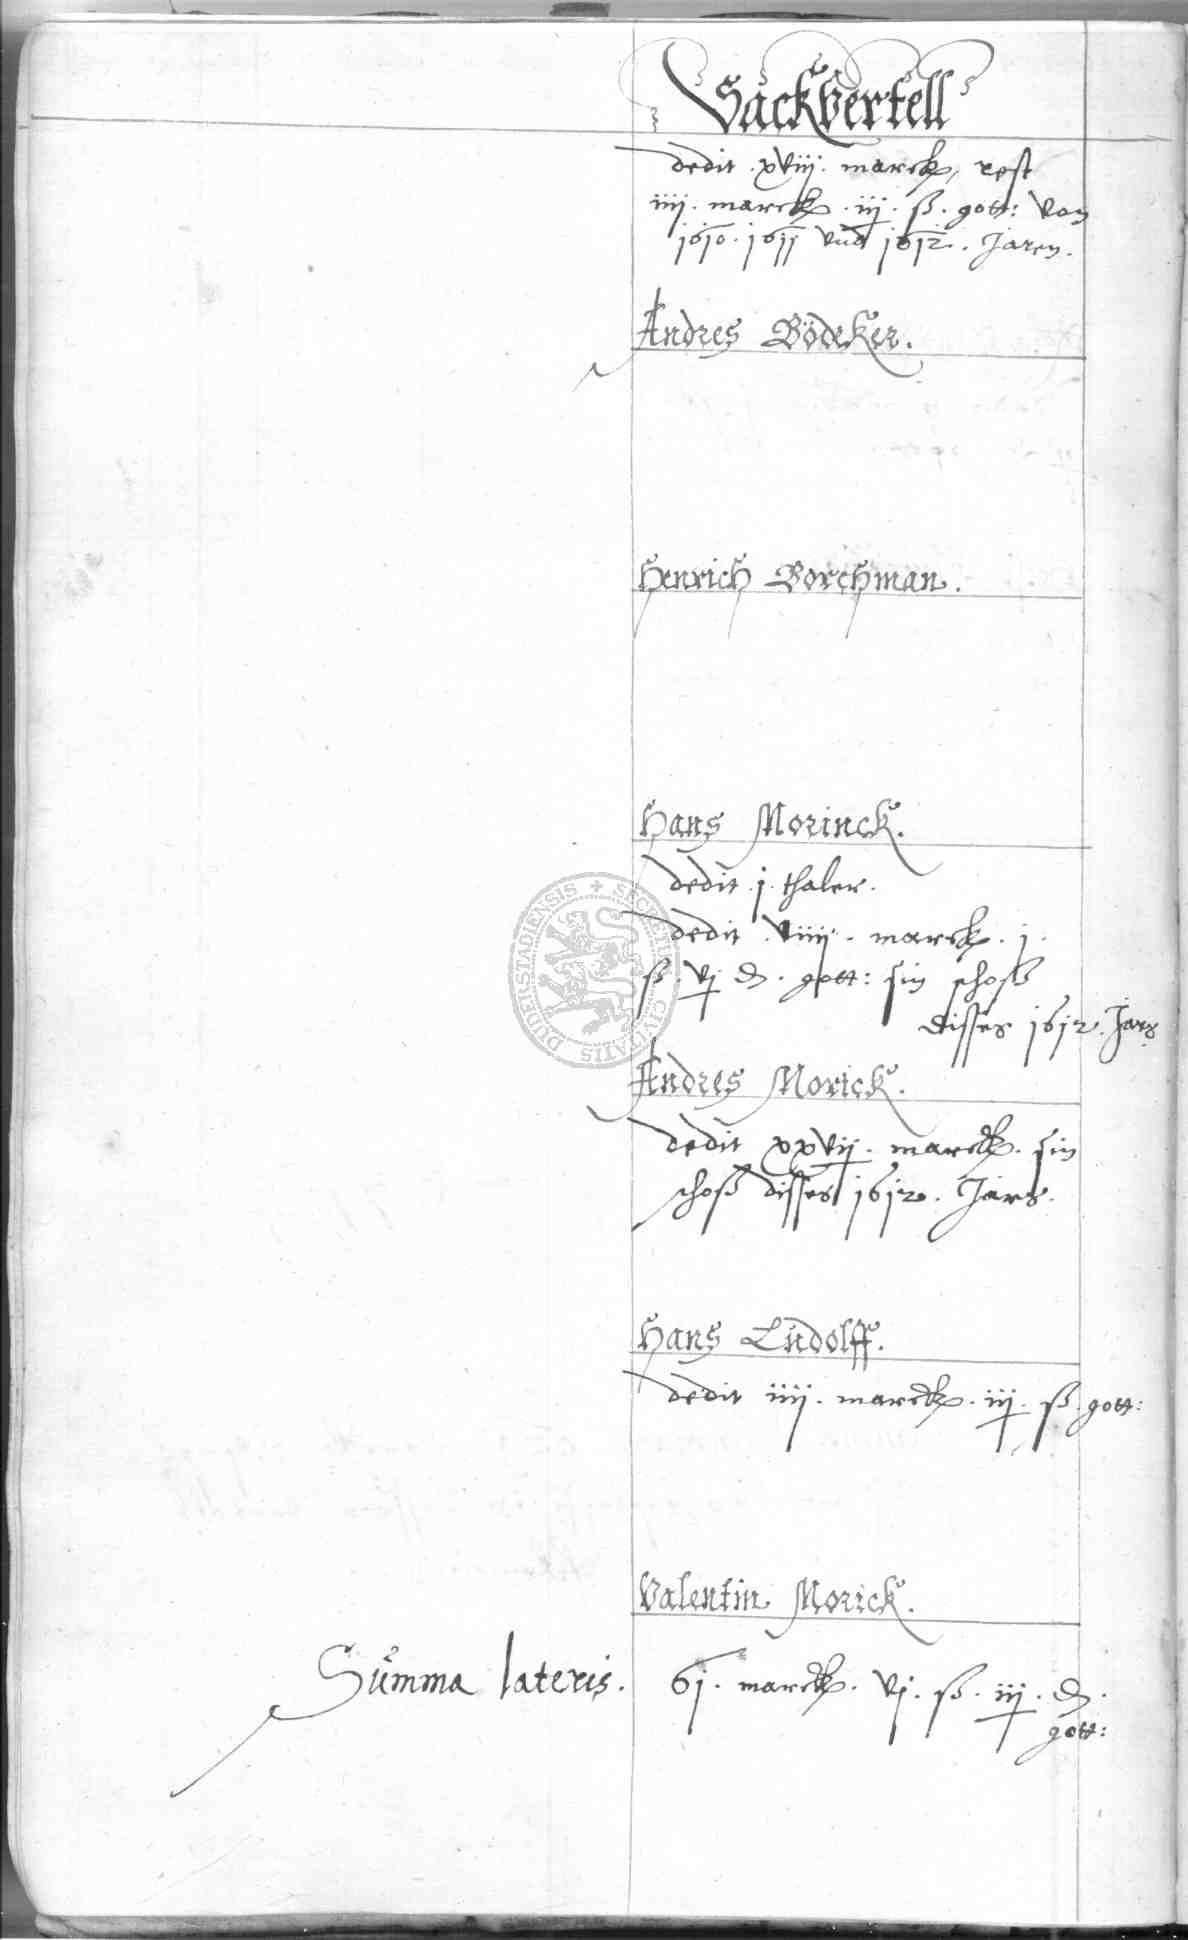 Sackvertell
dedit . xviij . marck, rest
iiij . marck . iij . ß . gott: von
1610 . 1611 vnd 1612 . Jaren .
Andres Bödeker .
Henrich Borchman .
Hans Morinck .
dedit . j . thaler .
dedit . viiij . marck . j .
ß . vj ₰ . gott: sin schoß
disses 1612 . Jars
Andres Morick .
dedit xxvij . marck . sin
schoß disses 1612 . Jars .
Hans Ludolff .
dedit iiij . marck . iij . ß . gott:
Valentin Morick .
Summa lateris . 61 . marck . vj . ß . iij . ₰ .
gott:
SECRETUM CIVITATIS DUDERSTADIENSIS